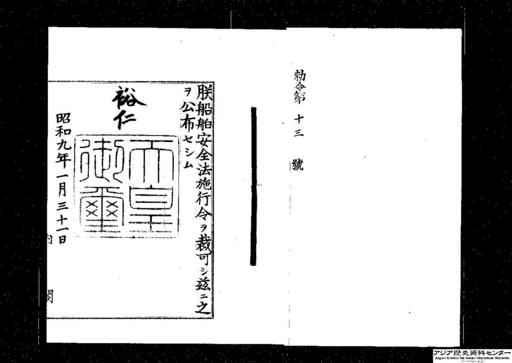 勅令第十三號
朕船舶安全法施行令ヲ裁可シ茲ニ之
ヲ公布セシム
裕仁
天皇
御璽
昭和九年一月三十一日
内閣
アジア歴史資料センター
Japan Center for Asian Historical Records